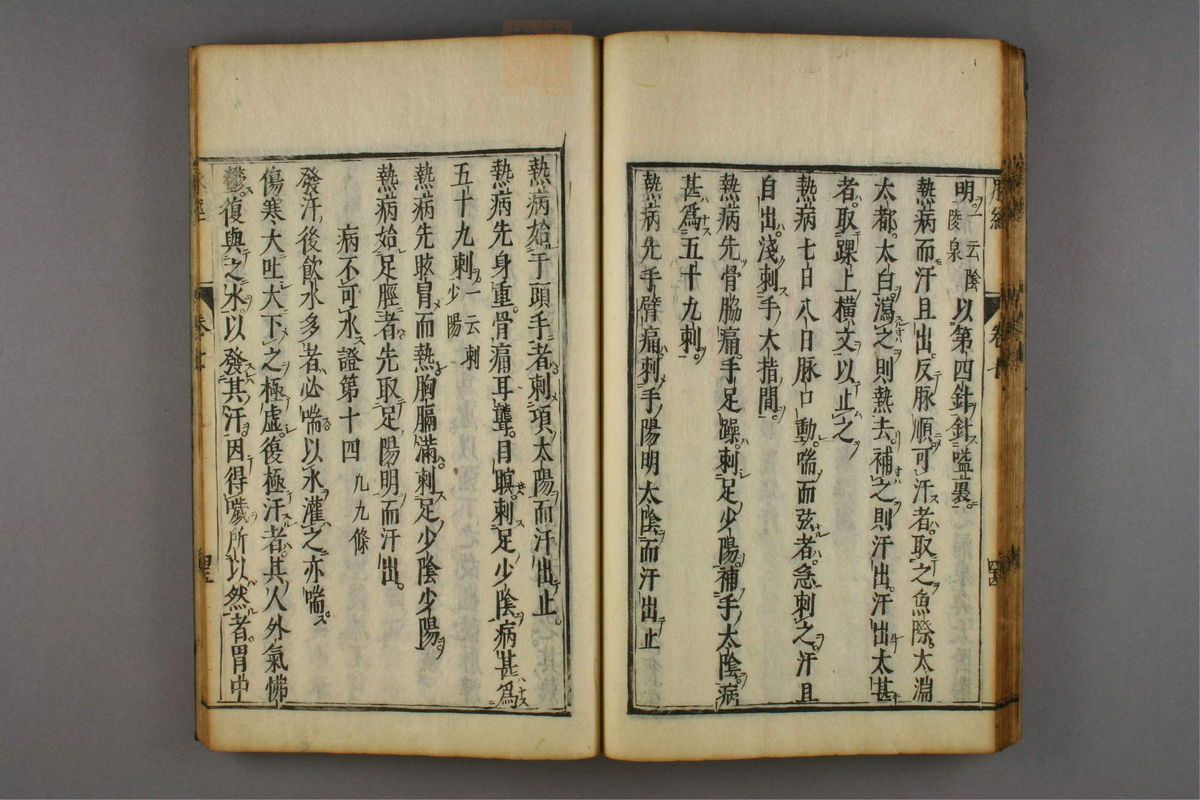 明一云陰陵泉以第四針針嗌裏
熱病而汗且出反脉順可汗者取之魚際太淵
太都太白瀉之則熱去補之則汗出汗出太甚
者取踝上橫文以止之
熱病七日八日脉口動喘而弦者急刺之汗且
自出淺刺手大指間
熱病先骨脇痛手足躁刺足少陽補手太陰病
甚爲五十九刺
熱病先手臂痛刺手陽明太陰而汗出止
熱病始于頭手者刺項太陽而汗出止
熱病先身重骨痛耳聾目瞑刺足少陰病甚爲
五十九刺一云刺少陽
熱病先眩冐而熱胸膈滿刺足少陰少陽
熱病始足脛者先取足陽明而汗出
病不可水證第十四 凡九條
發汗後飲水多者必喘以水灌之亦喘
傷寒大吐大下之極虛復極汗者其人外氣怫
鬱復與之水以發其汗因得噦所以然者胃中